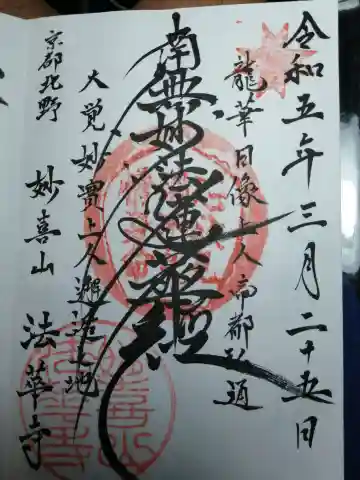 令和五年三月二十五日
龍華日像上人帝都弘通
南無妙法蓮華経
大覚妙實上人邂逅之地
京都北野 妙喜山 法華寺